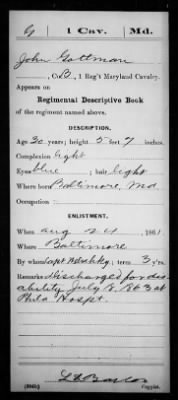 G | 1 Cav. | Md.
John Gottman
, Co. B, 1 Reg't Maryland Cavalry.
Appears on
Regimental Descriptive Book
of the regiment named above.
DESCRIPTION.
Age 30 years; height 5 feet 7 inches.
Complexion light
Eyes blue ; hair light
Where born Baltimore, Md.
Occupation
ENLISTMENT.
When Aug 24 , 1861
Where Baltimore
By whom Capt ; term 3 y'rs.
Remarks Discharged for dis
ability July 18, 1863 at
Phila Hospt.
Copyist.